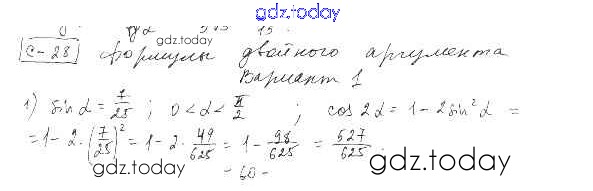 gdz.today
С-28 Формулы двойного аргумента
gdz.today
Вариант 1
1) sin α = 7/25 ; 0 < α < π/2 ; cos 2α = 1 - 2 sin² α =
= 1 - 2 · (7/25)² = 1 - 2 · 49/625 = 1 - 98/625 = 527/625 .
gdz.today
gdz.today